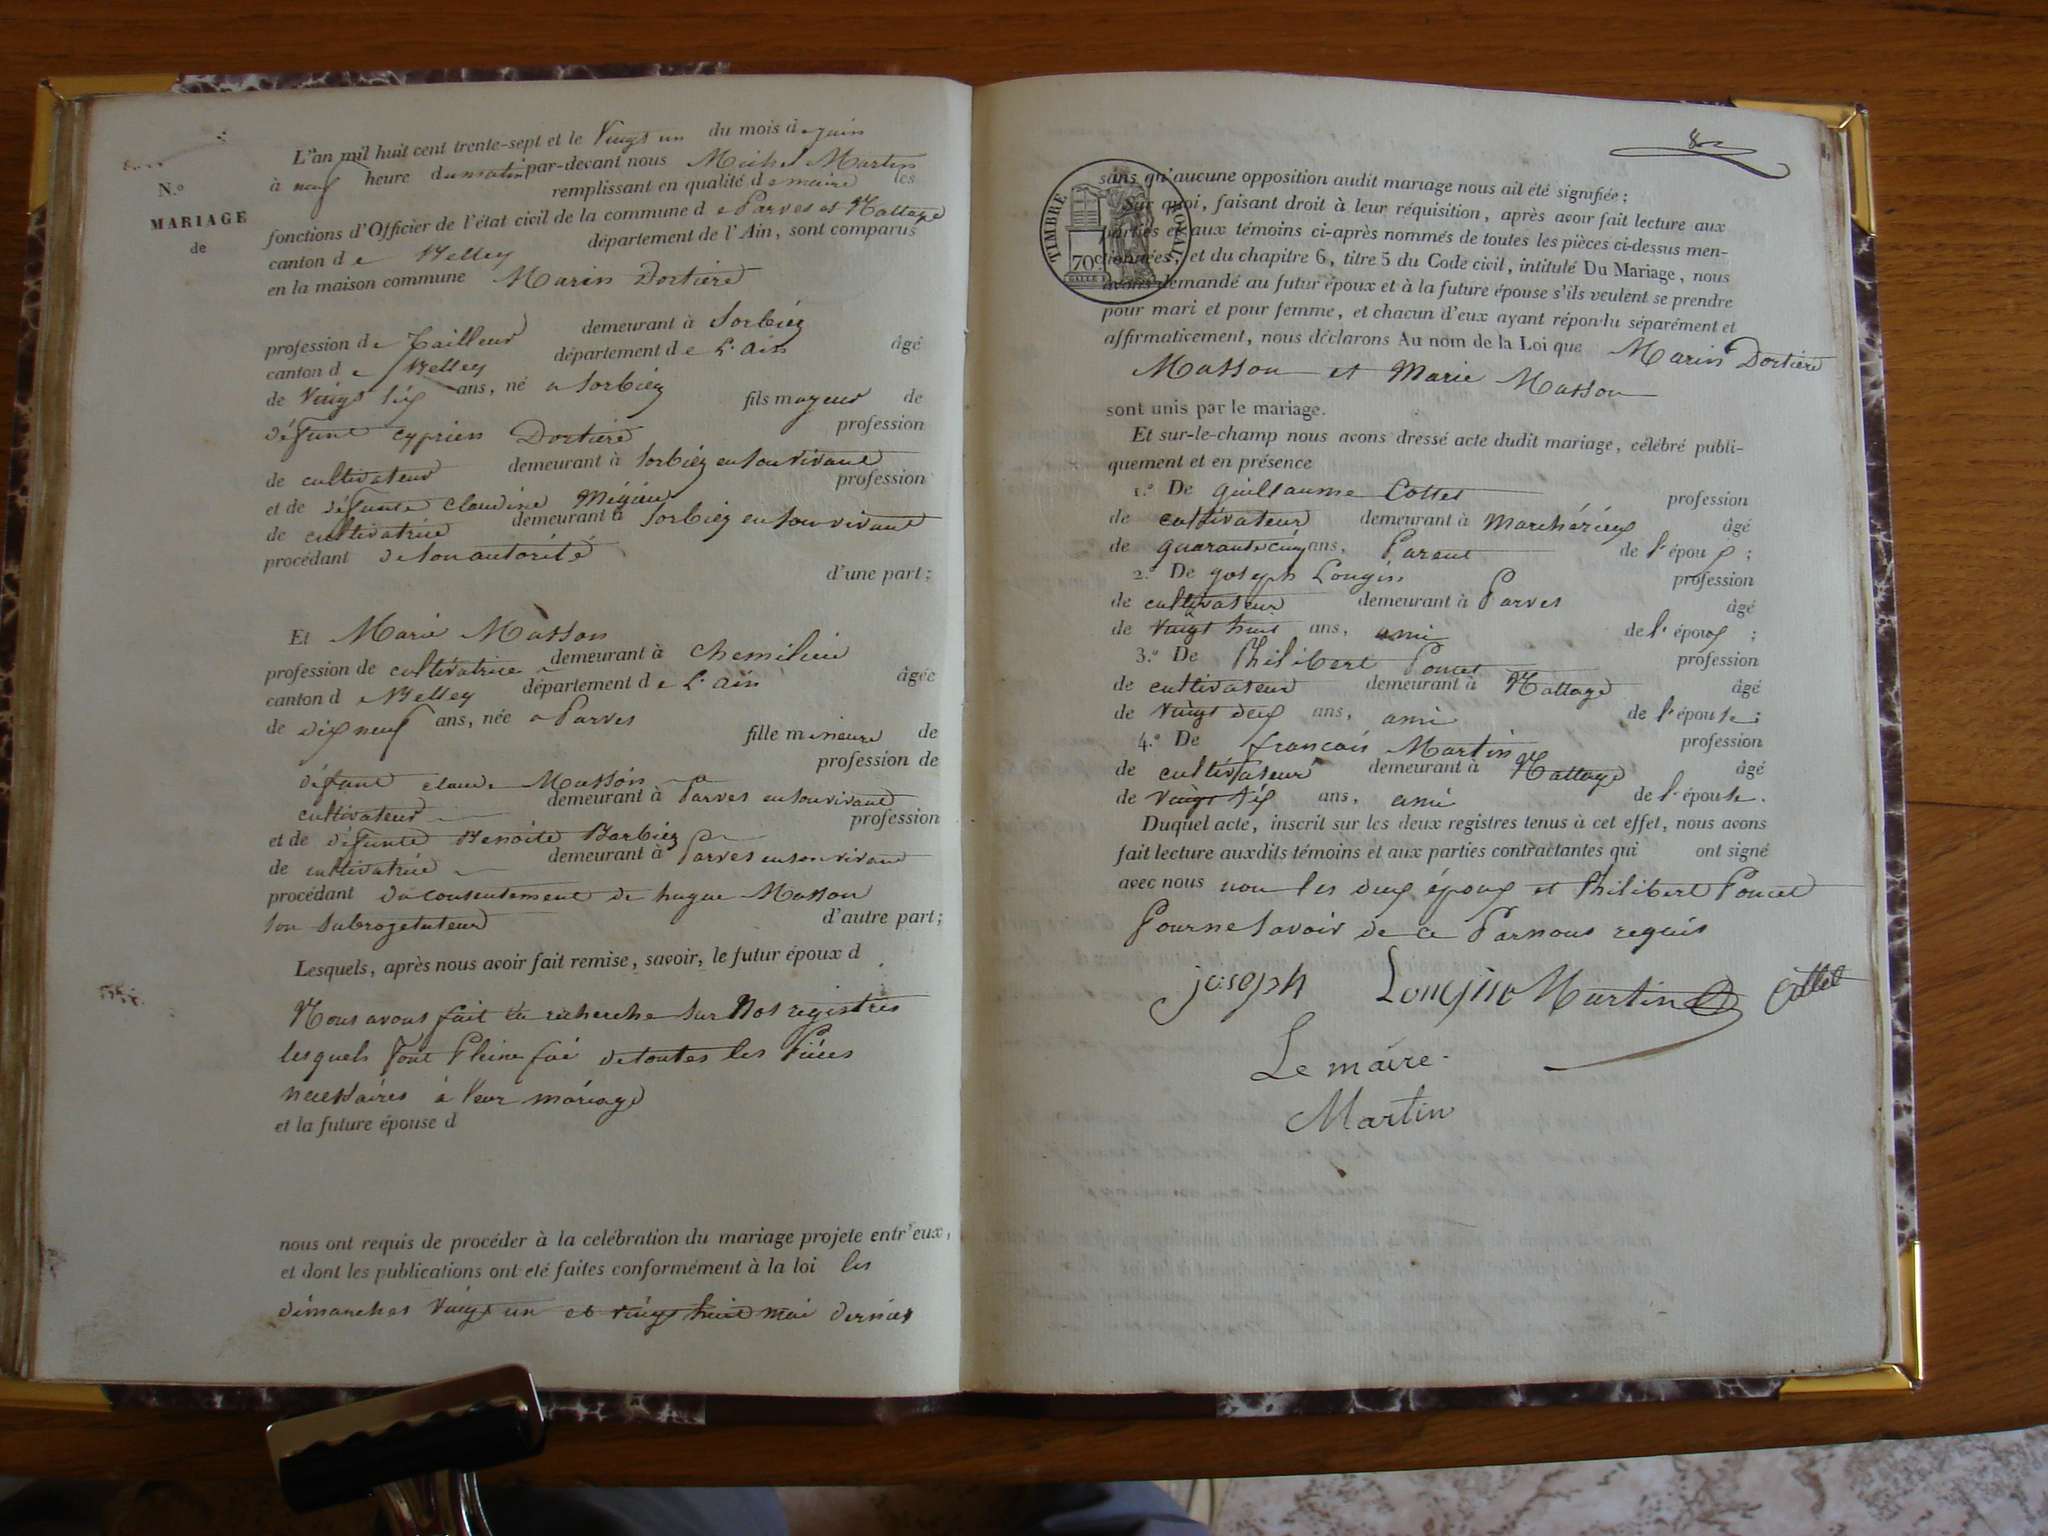 N.o
MARIAGE
de
L'an mil huit cent trente-sept et le Vingt un du mois de juin
à neuf heure du matin par-devant nous Michel Martin
remplissant en qualité de maire les
fonctions d'Officier de l'état civil de la commune de Parves et Nattage
canton de Belley département de l'Ain, sont comparus
en la maison commune Marin Dortière
profession de Tailleur demeurant à Sorbiéz
canton de Belley département de L'Ain âgé
de Vingt six ans, né a Sorbiéz fils mageur de
défunt cyprien Dortière profession
de cultivateur demeurant à Sorbiéz en son vivant
et de défunte claudine Mégieu profession
de cultivatrice demeurant à Sorbiéz en son vivant
procédant de son autorité
d'une part;
Et Marie Masson
profession de cultivatrice demeurant à Chemilieu
canton de Belley département de L'Ain âgée
de dix neuf ans, née a Parves
fille mineure de
défunt claude Masson profession de
cultivateur demeurant à Parves en son vivant
et de défunte Benoite Barbiéz profession
de cultivatrice demeurant à Parves en son vivant
procédant du consentement de hugue Masson
son subrogetuteur d'autre part;
Lesquels, après nous avoir fait remise, savoir, le futur époux d
Nous avons fait la recherche sur Nos registres
lesquels font Pleine foi de toutes les Piéces
necessaires à leur mariage
et la future épouse d
nous ont requis de procéder à la celébration du mariage projete entr'eux,
et dont les publications ont eté faites conformément à la loi les
dimanches vingt un et vingt huit mai dernier
82
TIMBRE ROYAL
70c
sans qu'aucune opposition audit mariage nous ait été signifiée;
Sur quoi, faisant droit à leur réquisition, après avoir fait lecture aux
parties et aux témoins ci-après nommés de toutes les pièces ci-dessus men-
tionnées, et du chapitre 6, titre 5 du Code civil, intitulé Du Mariage, nous
avons demandé au futur époux et à la future épouse s'ils veulent se prendre
pour mari et pour femme, et chacun d'eux ayant répondu séparément et
affirmativement, nous déclarons Au nom de la Loi que Marin Dortière
Masson et Marie Masson
sont unis par le mariage.
Et sur-le-champ nous avons dressé acte dudit mariage, célébré publi-
quement et en présence
1.o De guillaume Cottet profession
de cultivateur demeurant à Marchérieux âgé
de quarante cinq ans, Parent de l'époux;
2.o De joseph Longin profession
de cultivateur demeurant à Parves âgé
de vingt huit ans, ami de l'époux;
3.o De Philibert Poncet profession
de cultivateur demeurant à Nattage âgé
de vingt deux ans, ami de l'épouse;
4.o De francois Martin profession
de cultivateur demeurant à Nattage âgé
de vingt six ans, ami de l'épouse.
Duquel acte, inscrit sur les deux registres tenus à cet effet, nous avons
fait lecture auxdits témoins et aux parties contractantes qui ont signé
avec nous non les deux époux et Philibert Poncet
Pour ne savoir de ce Par nous requis
joseph Longin Martin Cottet
Le maire
Martin